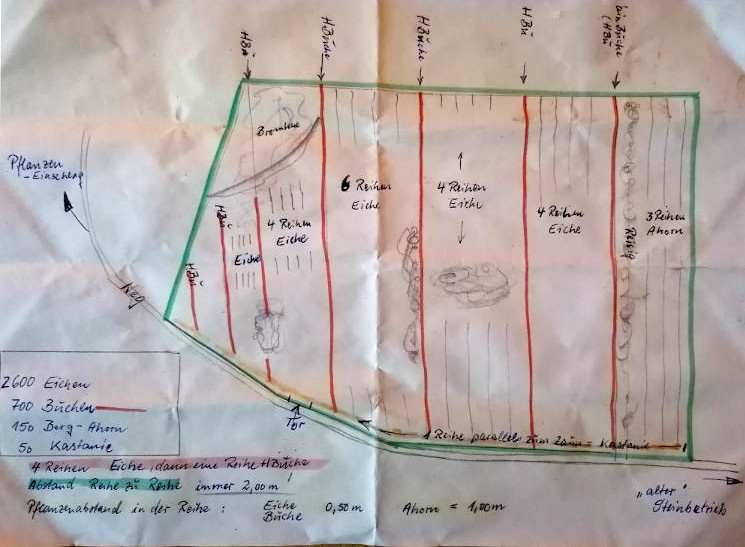 HBü
HBüche
HBüche
HBü
HBüche
(HBü
Brombeere
Pflanzen
-Einschlag
HBü
HBü
Eiche
4 Reihen
Eiche
6 Reihen
Eiche
4 Reihen
Eiche
4 Reihen
Eiche
Reisig
3 Reihen
Ahorn
Weg
Tor
1 Reihe parallel zum Zaun = Kastanie
2600 Eichen
700 Büchen
150 Berg-Ahorn
50 Kastanie
4 Reihen Eiche, dann eine Reihe HBüche
Abstand Reihe zu Reihe immer 2,00 m !
Pflanzenabstand in der Reihe : Eiche 0,50 m Ahorn = 1,00 m
Büche
"alter"
Steinbetrieb